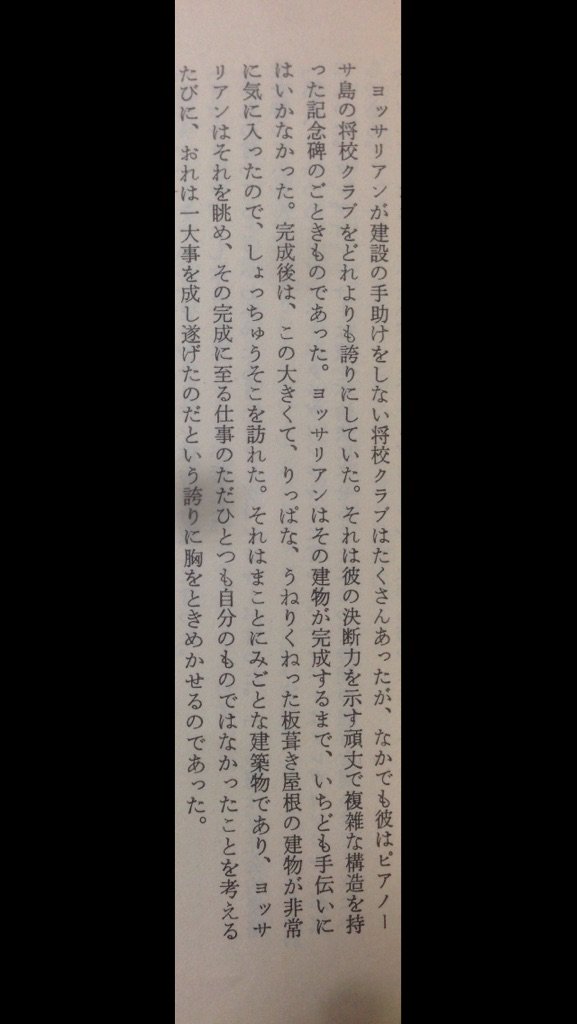 ヨッサリアンが建設の手助けをしない将校クラブはたくさんあったが、なかでも彼はピアノー
サ島の将校クラブをどれよりも誇りにしていた。それは彼の決断力を示す頑丈で複雑な構造を持
った記念碑のごときものであった。ヨッサリアンはその建物が完成するまで、いちども手伝いに
はいかなかった。完成後は、この大きくて、りっぱな、うねりくねった板葺き屋根の建物が非常
に気に入ったので、しょっちゅうそこを訪れた。それはまことにみごとな建築物であり、ヨッサ
リアンはそれを眺め、その完成に至る仕事のただひとつも自分のものではなかったことを考える
たびに、おれは一大事を成し遂げたのだという誇りに胸をときめかせるのであった。